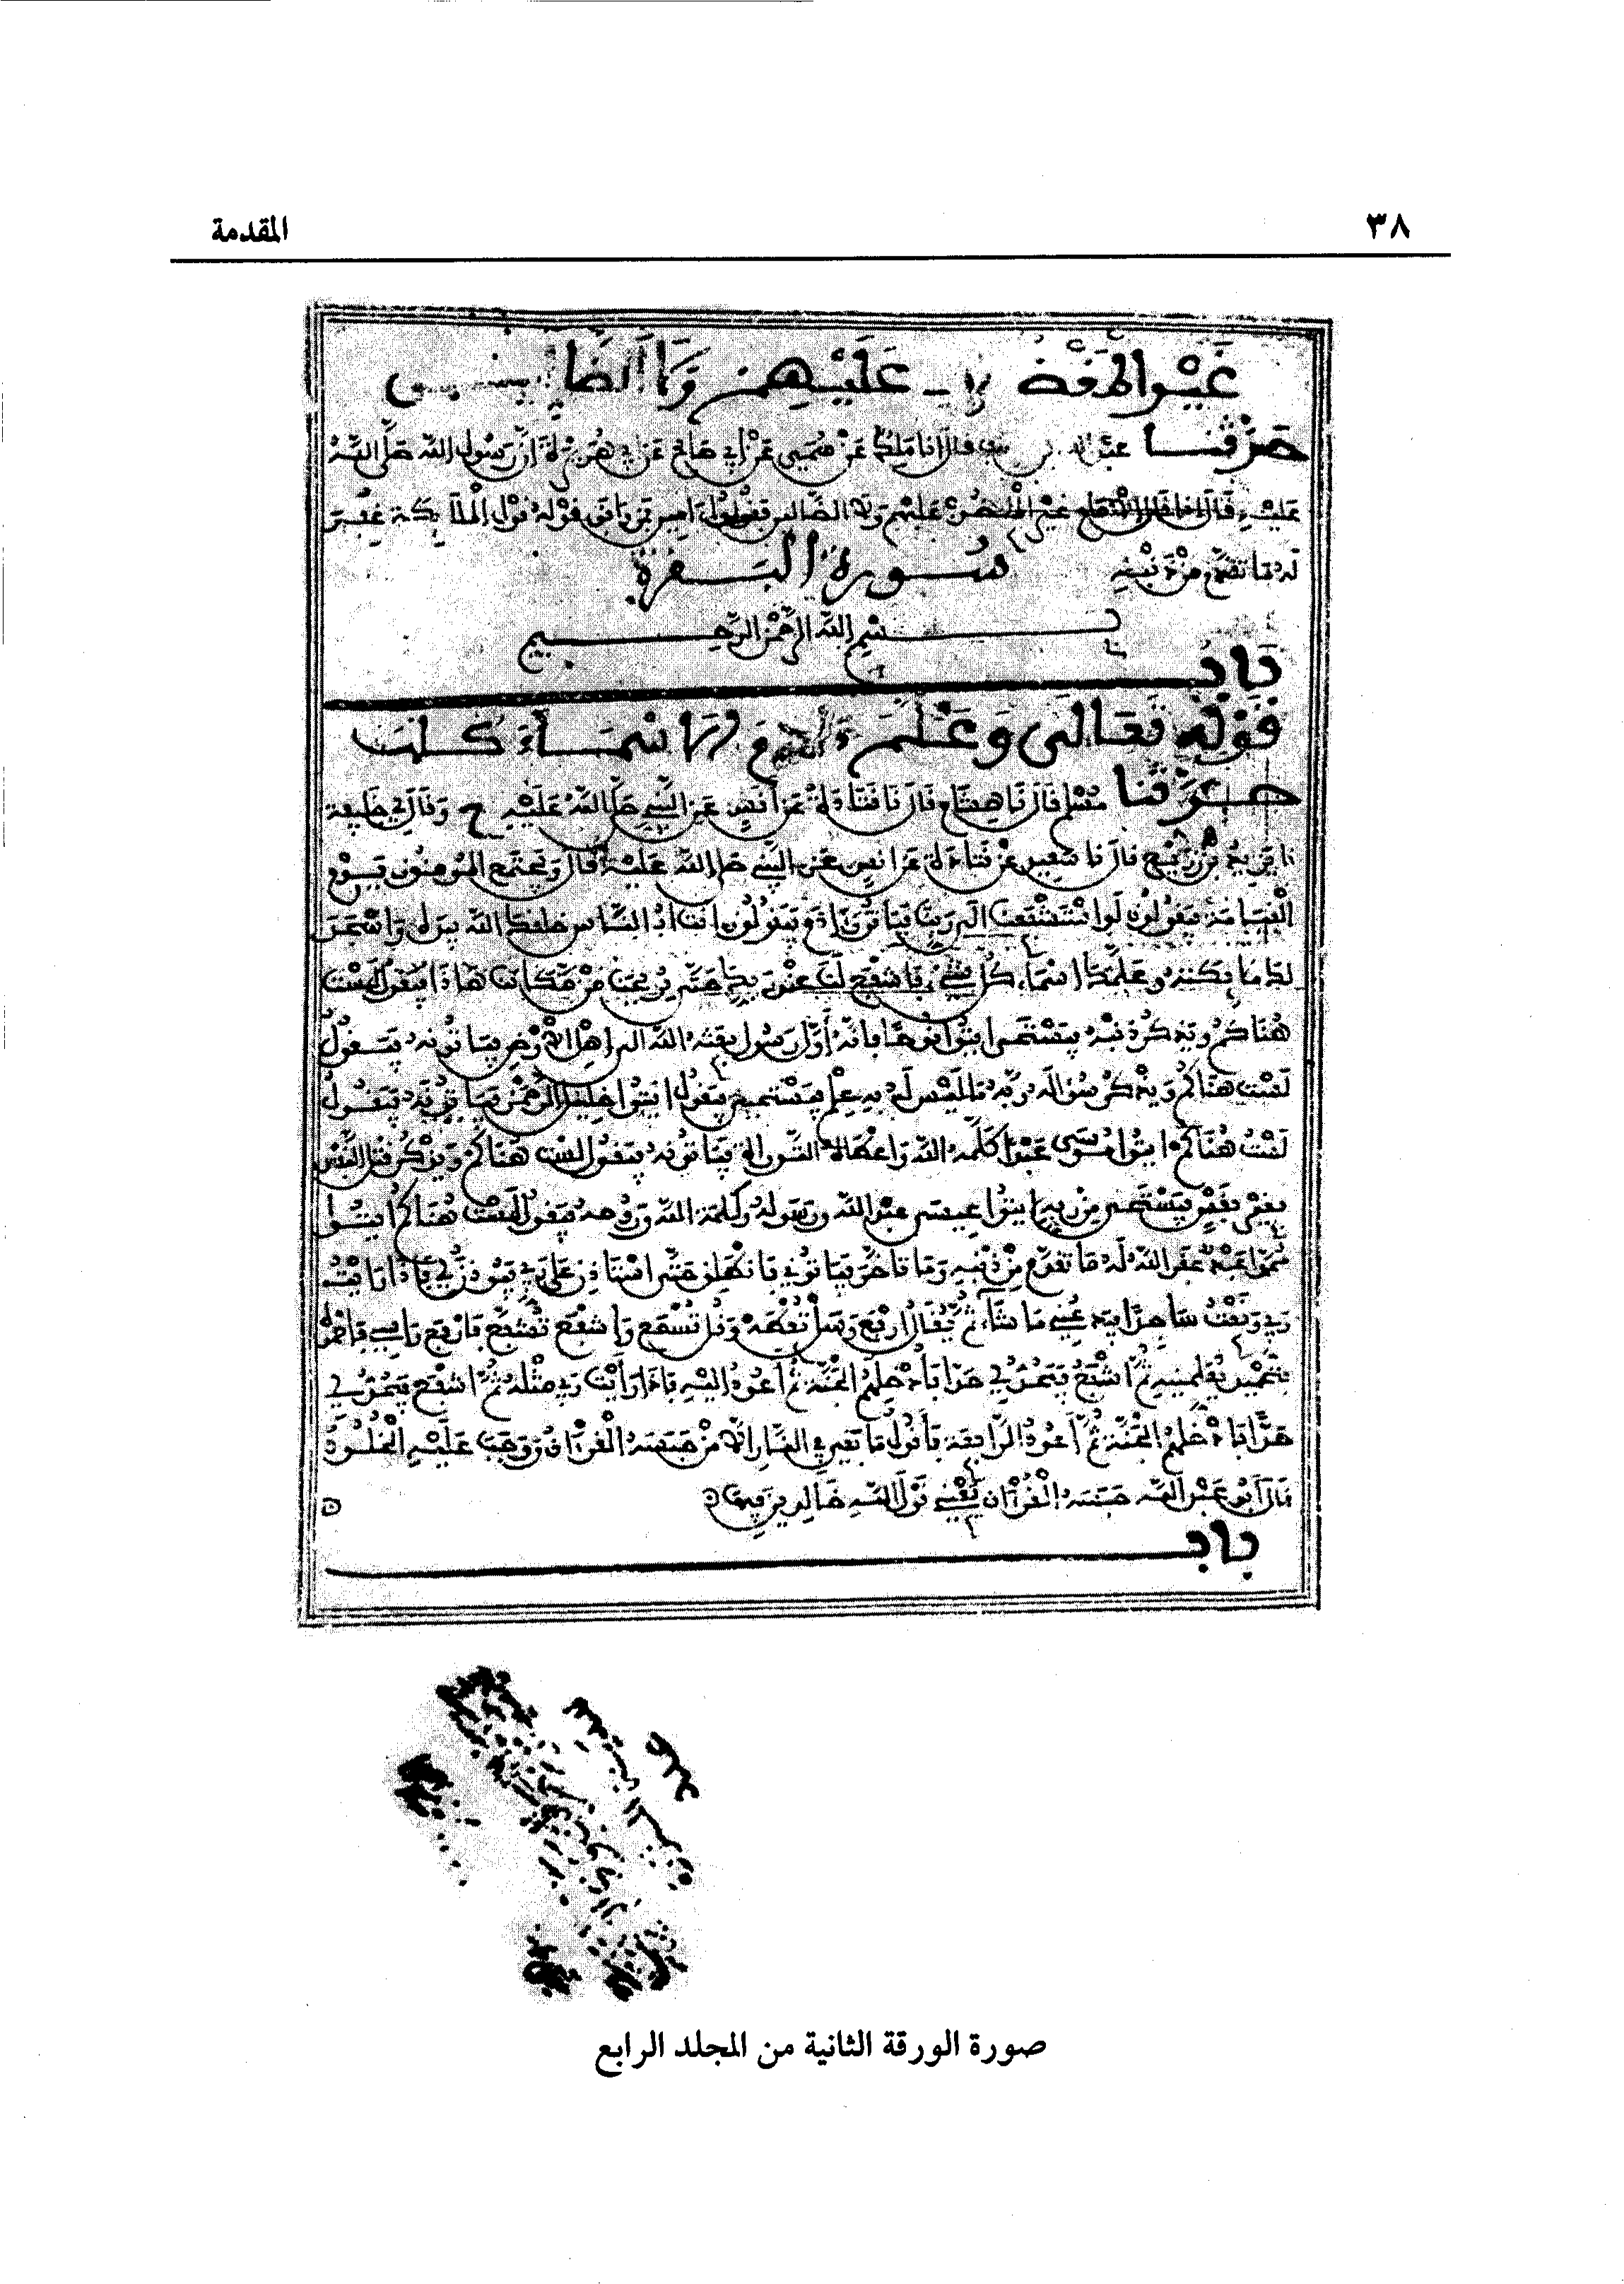 ٣٨
المقدمة
غير المغضو ب عليهم ولا الضا لين
حدثنا عبد الله بن يوسف قال انا ملك عن سمي عن أبي صالح عن أبي هريرة أن رسول الله صلى الله
عليه قال اذا قال الإمام غير المغضوب عليهم ولا الضالين فقولوا ءامين فمن وافق قوله قول الملايكة غفر
له ما تقدم من ذنبه سورة البقرة
بسم الله الرحمن الرحيم
باب
قوله تعالى وعلم ءادم الاسماء كلها
حدثنا مسلم قال نا هشام قال نا قتادة عن أنس عن النبي صلى الله عليه ح وقال لي خليفة
نا يزيد بن زريع قال نا سعيد عن قتادة عن انس عن النبي صلى الله عليه قال يجتمع المومنون يوم
القيامة فيقولون لو استشفعنا الى ربنا فياتون ءادم فيقولون انت ابو الناس خلقك الله بيده واسجد
لك ملايكته وعلمك اسماء كل شيء فاشفع لنا عند ربك حتى يريحنا من مكاننا هاذا فيقول لست
هناكم ويذكر ذنبه فيستحي ايتوا نوحا فانه أول رسول بعثه الله الى اهل الارض فياتونه فيقول
لست هناكم ويذكر سؤاله ربه ما ليس له به علم فيستحي فيقول ايتوا خليل الرحمن فياتونه فيقول
لست هناكم ايتوا موسى عبدا كلمه الله واعطاه التوراة فياتونه فيقول لست هناكم ويذكر قتل النفس
بغير نفس فيستحي من ربه ايتوا عيسى عبد الله ورسوله وكلمة الله وروحه فيقول لست هناكم ايتوا
محمدا عبدا غفر الله له ما تقدم من ذنبه وما تاخر فياتوني فانطلق حتى استاذن على ربي فيوذن لي فاذا رايت
ربي وقعت ساجدا فيدعني ما شاء ثم يقال ارفع وسل تعطه وقل تسمع واشفع تشفع فارفع راسي فاحمده
بتحميد يعلمنيه ثم اشفع فيحد لي حدا فادخلهم الجنة ثم أعود اليه فاذا رأيت ربي مثله ثم اشفع فيحد لي
حدا فادخلهم الجنة ثم أعود الرابعة فأقول ما بقي في النار الا من حبسه القرءان ووجب عليه الخلود
قال أبو عبد الله حبسه القرءان يعني قول الله خالدين فيها
باب
صورة الورقة الثانية من المجلد الرابع